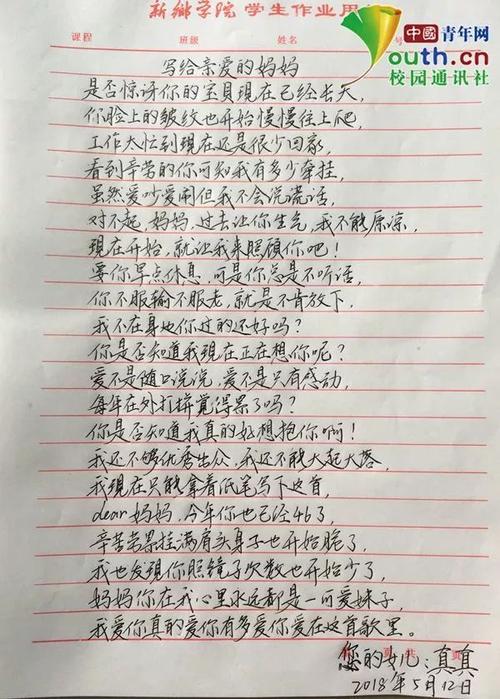 新鄉学院 学生作业用
中国青年网
Youth.cn
校园通讯社
课程 班级 姓名 号
写给亲爱的妈妈
是否惊讶你的宝貝現在已经长大,
你脸上的皱纹也开始慢慢往上爬,
工作太忙到現在还是很少回家,
看到辛劳的你可知我有多少牵挂,
虽然爱吵爱闹但我不会说谎话,
对不起,妈妈,过去让你生气,我不能原谅,
現在开始,就让我来照顧你吧!
要你早点休息,可是你总是不听话,
你不服输不服老,就是不肯放下,
我不在身边你过的还好吗?
你是否知道我現在正在想你呢?
爱不是随口说说,爱不是只有感动,
每年在外打拼覚得累了吗?
你是否知道我真的好想抱你啊!
我还不够优秀出众,我还不能大起大落,
我現在只能拿着纸笔写下这首,
dear妈妈,今年你也已经46了,
辛苦劳累挂满肩头身子也开始脆了,
我也发現你照镜子次数也开始少了,
妈妈你在我心里永远都是一可爱妹子,
我爱你真的爱你有多爱你爱在这首歌里。
页 共 页
您的女儿:真真
2018年5月12日